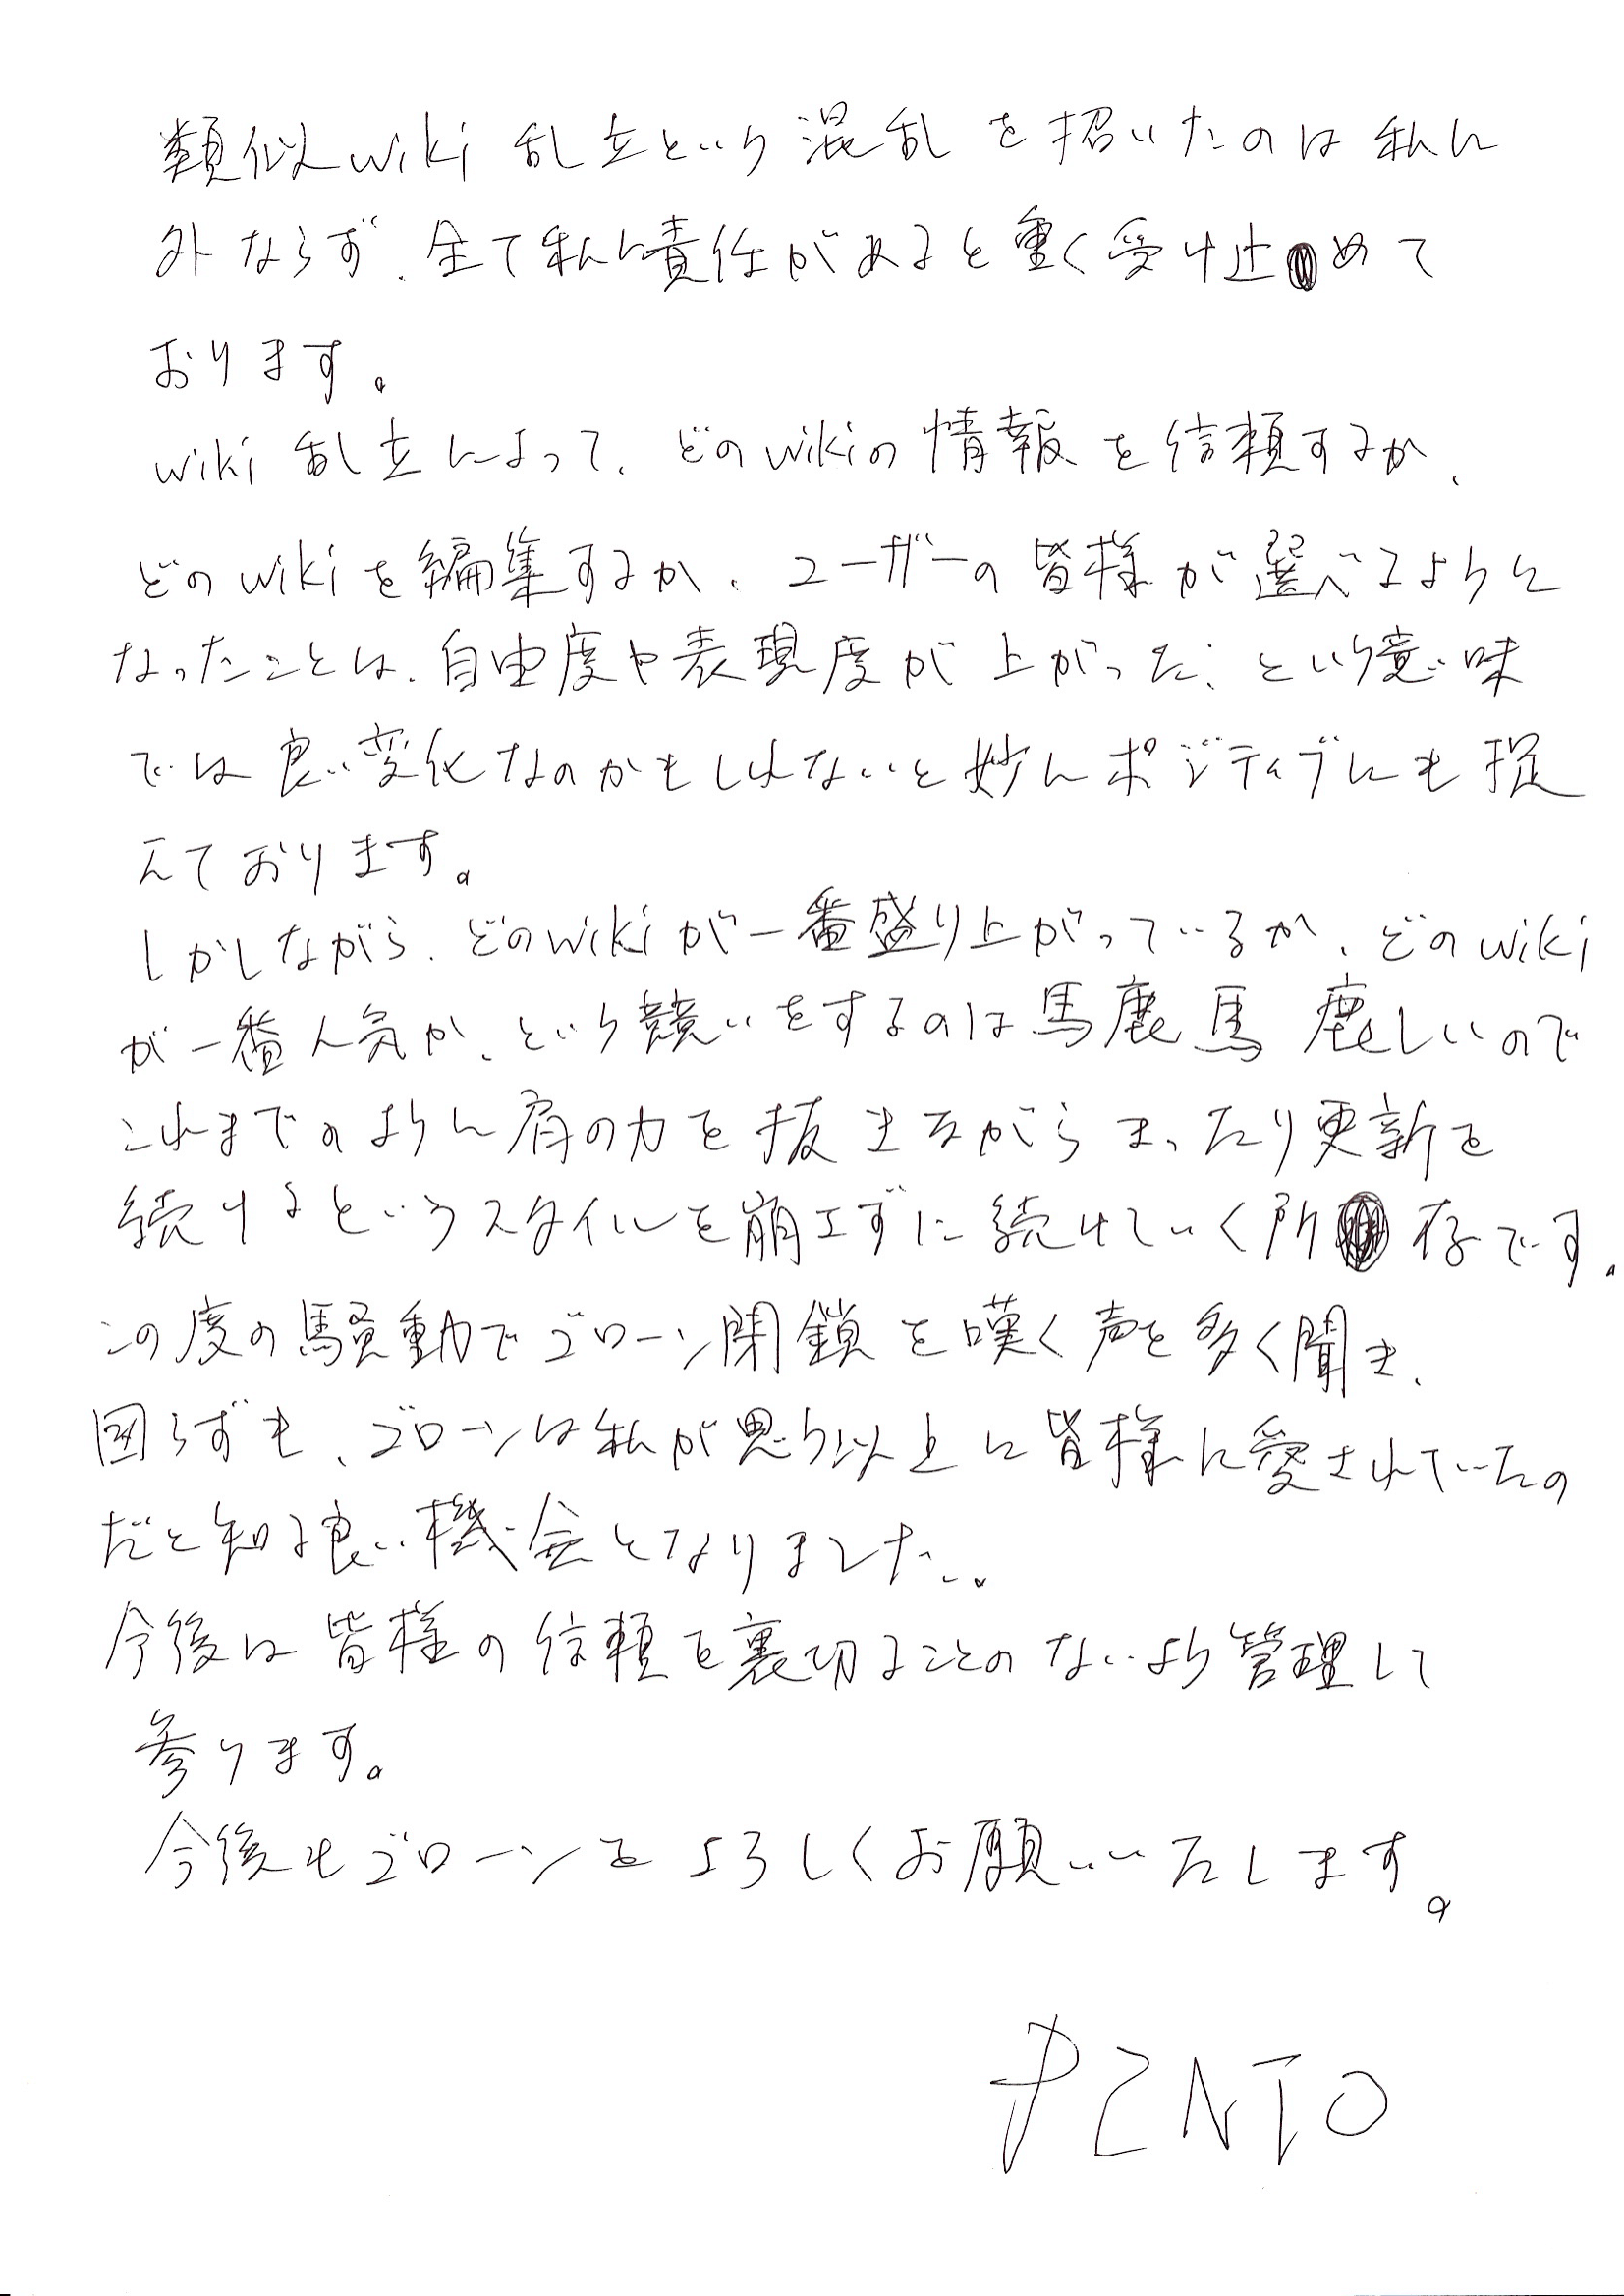 類似wiki乱立という混乱を招いたのは私に
外ならず、全て私に責任があると重く受け止めて
おります。
wiki乱立によって、どのwikiの情報を信頼するか、
どのwikiを編集するか、ユーザーの皆様が選べるように
なったことは、自由度や表現度が上がった、という意味
では良い変化なのかもしれないと妙にポジティブにも捉
えております。
しかしながら、どのwikiが一番盛り上がっているか、どのwiki
が一番人気か、という競いをするのは馬鹿馬鹿しいので
これまでのように肩の力を抜きながらまったり更新を
続けるというスタイルを崩エずに続けていく所存です。
この度の騒動でゴローン閉鎖を嘆く声を多く聞き、
図らずも、ゴローンは私が思う以上に皆様に愛されていたの
だと知る良い機会となりました。
今後は皆様の信頼を裏切ることのないよう管理して
参ります。
今後もゴローンをよろしくお願いいたします。
PENTO